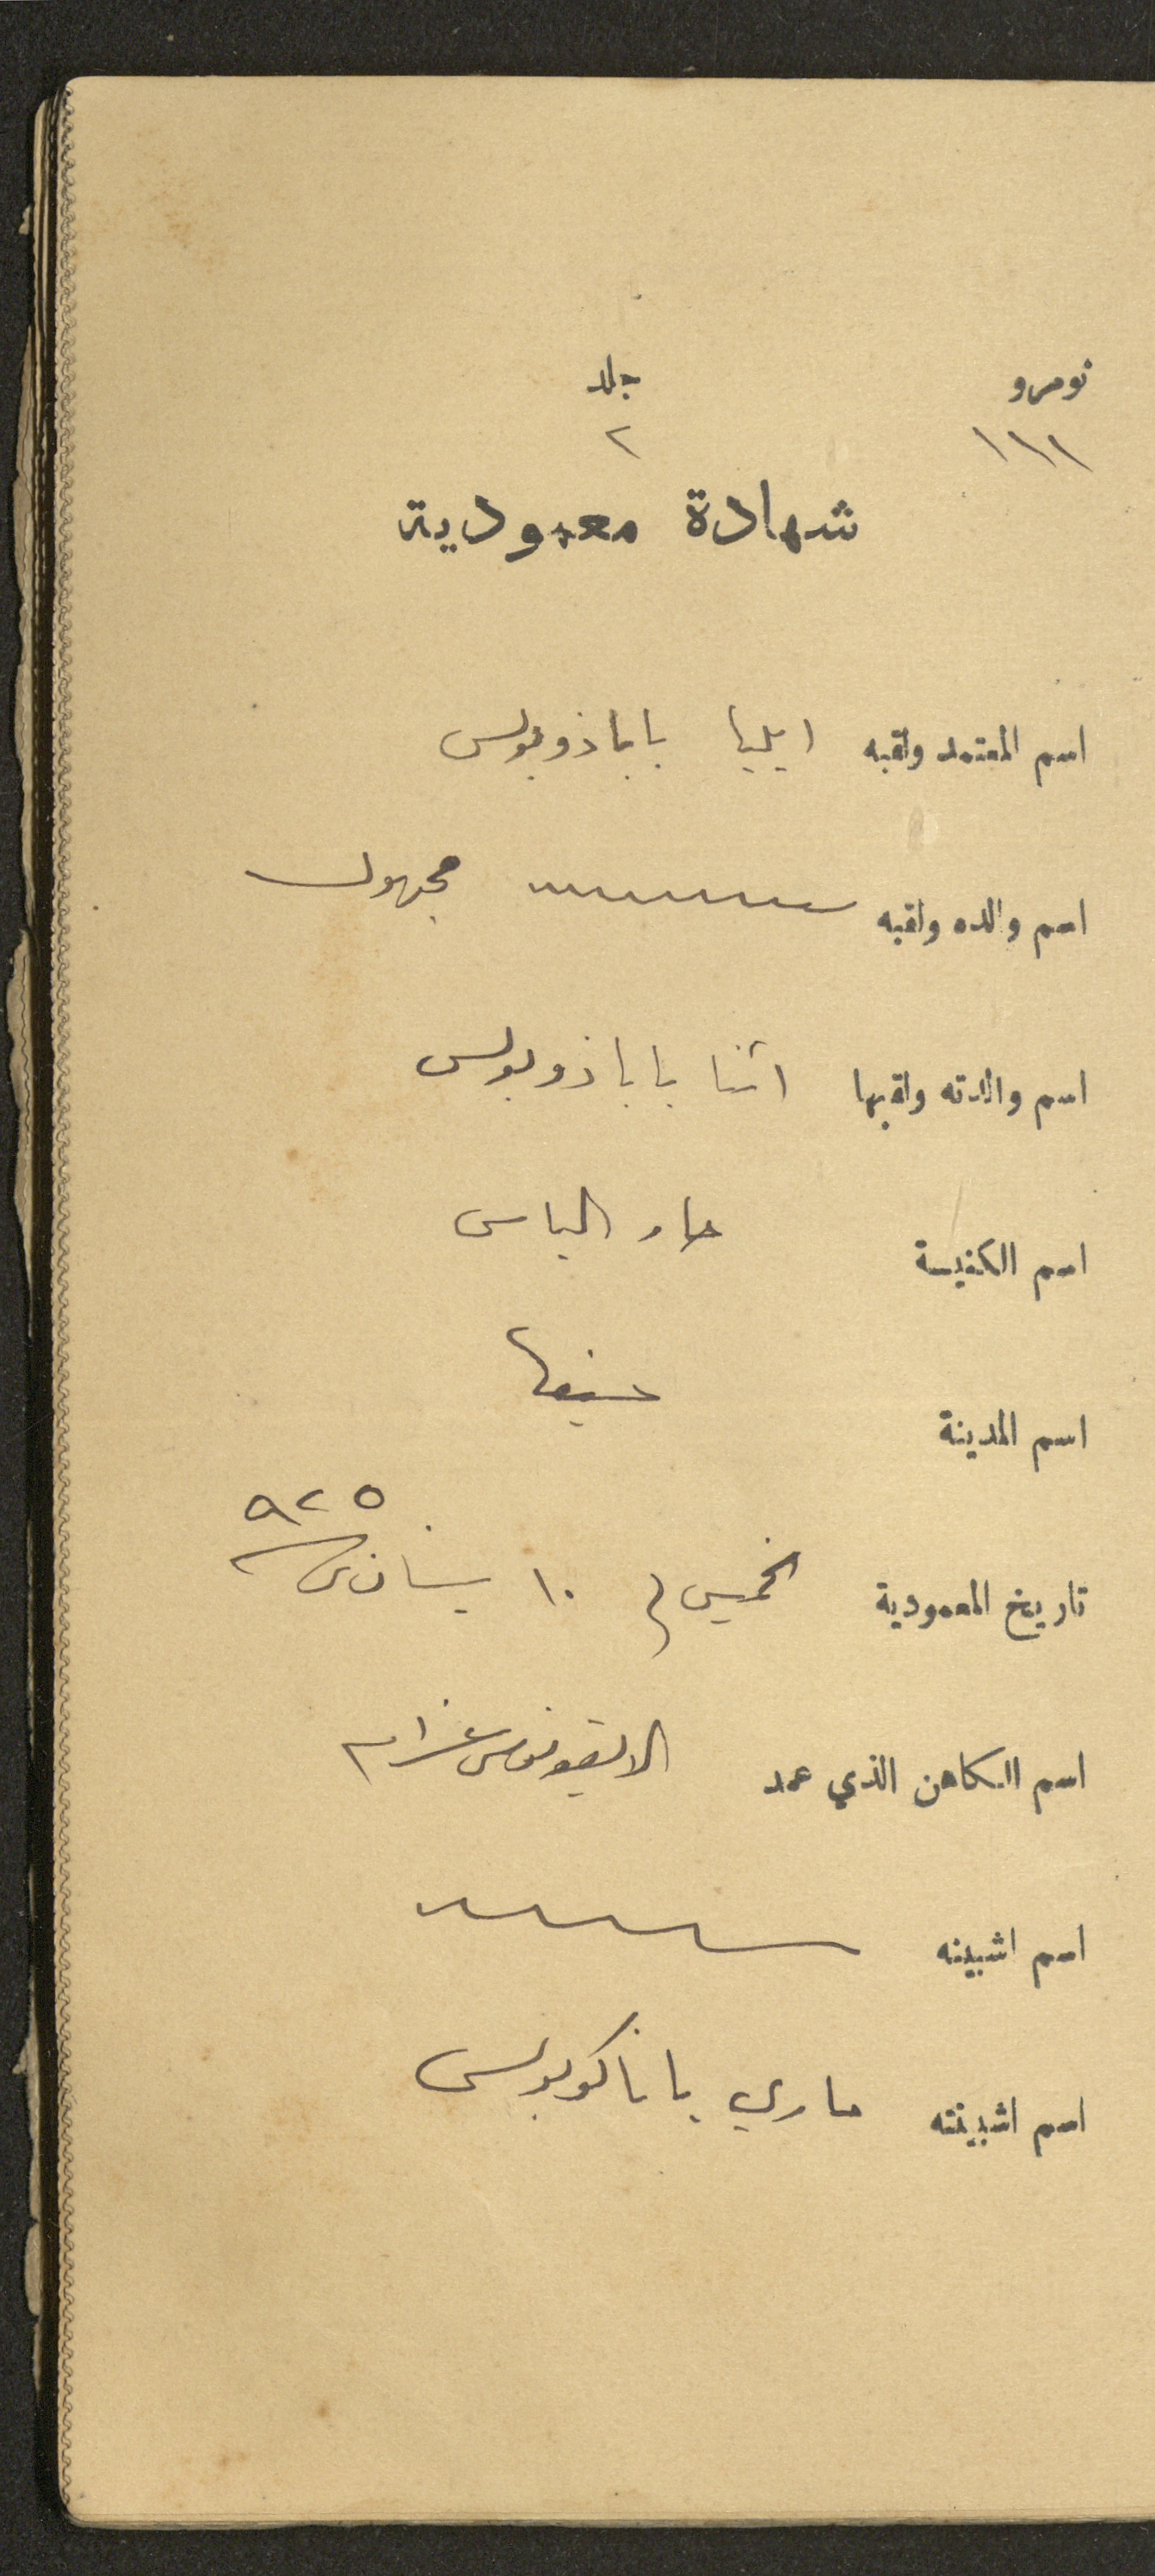 نومرو جلد
١١١ ٢
شهادة معمودية
اسم المعتمد ولقبه ايليا بابادوبولس
اسم والده ولقبه مجهول
اسم والدته ولقبها اثنا باباذوبولس
اسم الكنيسة مار الياس
اسم المدينة حيفا
تاريخ المعمودية الخميس في ١٠ نيسان ٩٢٥
اسم الكاهن الذي عمد الايقونومس
اسم اشبينه
اسم اشبينته ماري